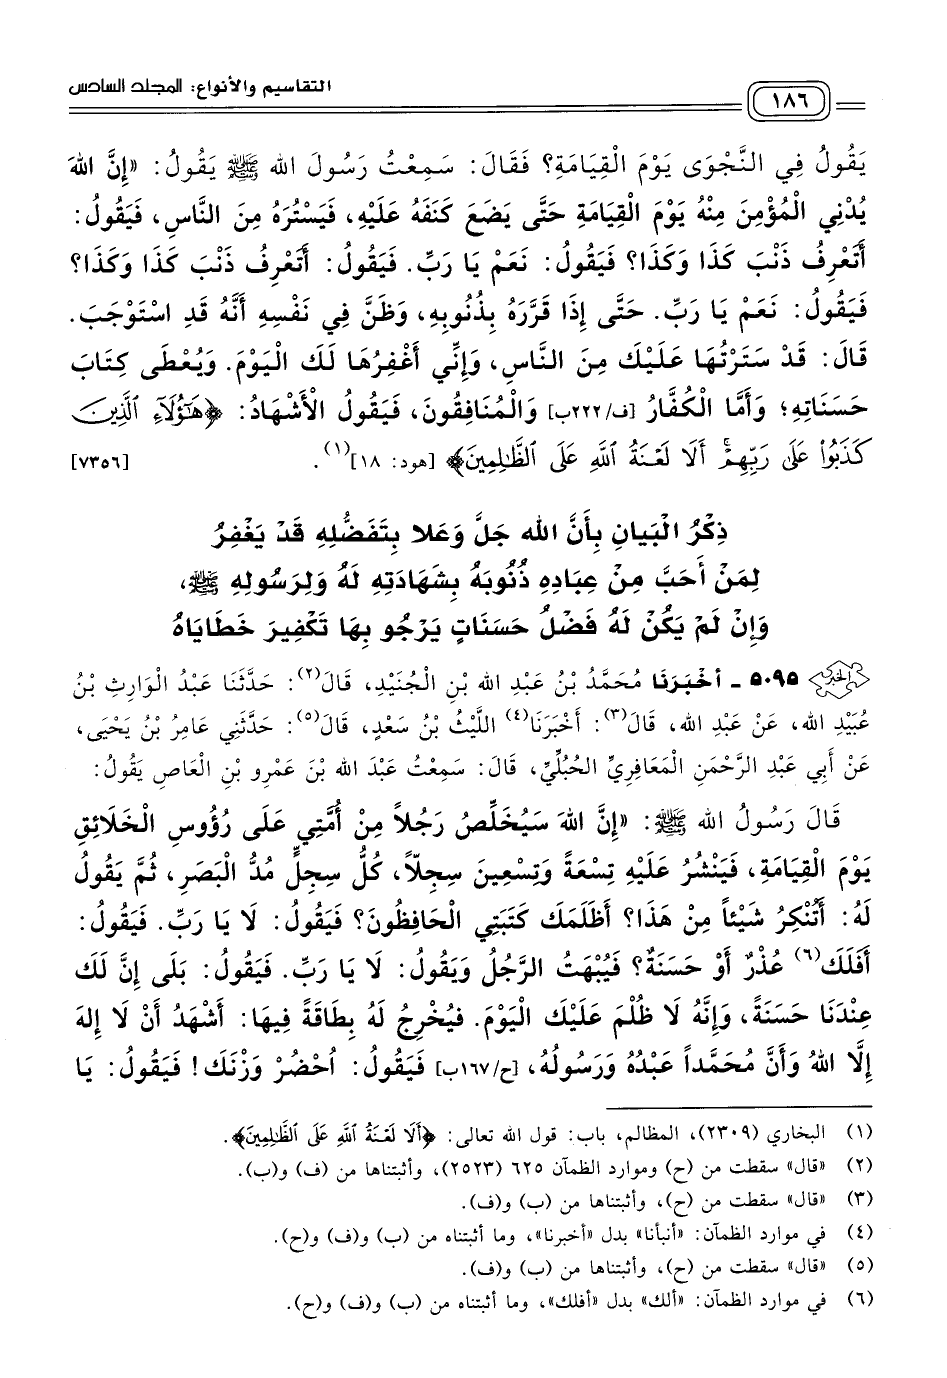 ١٨٦ التقاسيم والأنواع: المجلد السادس
يَقُولُ فِي النَّجْوَى يَوْمَ الْقِيَامَةِ؟ فَقَالَ: سَمِعْتُ رَسُولَ الله ﷺ يَقُولُ: «إِنَّ اللهَ
يُدْنِي الْمُؤْمِنَ مِنْهُ يَوْمَ الْقِيَامَةِ حَتَّى يَضَعَ كَنَفَهُ عَلَيْهِ، فَيَسْتُرَهُ مِنَ النَّاسِ، فَيَقُولُ:
أَتَعْرِفُ ذَنْبَ كَذَا وَكَذَا؟ فَيَقُولُ: نَعَمْ يَا رَبِّ. فَيَقُولُ: أَتَعْرِفُ ذَنْبَ كَذَا وَكَذَا؟
فَيَقُولُ: نَعَمْ يَا رَبِّ. حَتَّى إِذَا قَرَّرَهُ بِذُنُوبِهِ، وَظَنَّ فِي نَفْسِهِ أَنَّهُ قَدِ اسْتَوْجَبَ.
قَالَ: قَدْ سَتَرْتُهَا عَلَيْكَ مِنَ النَّاسِ، وَإِنِّي أَغْفِرُهَا لَكَ الْيَوْمَ. وَيُعْطَى كِتَابَ
حَسَنَاتِهِ؛ وَأَمَّا الْكُفَّارُ [ف/٢٢٢ب] وَالْمُنَافِقُونَ، فَيَقُولُ الْأَشْهَادُ: ﴿هَٰٓؤُلَآءِ ٱلَّذِينَ
كَذَبُوا۟ عَلَىٰ رَبِّهِمْ ۚ أَلَا لَعْنَةُ ٱللَّهِ عَلَى ٱلظَّٰلِمِينَ﴾ [هود: ١٨](١). [٧٣٥٦]
ذِكْرُ الْبَيَانِ بِأَنَّ الله جَلَّ وَعَلا بِتَفَضُّلِهِ قَدْ يَغْفِرُ
لِمَنْ أَحَبَّ مِنْ عِبَادِهِ ذُنُوبَهُ بِشَهَادَتِهِ لَهُ وَلِرَسُولِهِ ﷺ،
وَإِنْ لَمْ يَكُنْ لَهُ فَضْلُ حَسَنَاتٍ يَرْجُو بِهَا تَكْفِيرَ خَطَايَاهُ
٥٠٩٥ - أَخْبَرَنَا مُحَمَّدُ بْنُ عَبْدِ الله بْنِ الْجُنَيْدِ، قَالَ(٢): حَدَّثَنَا عَبْدُ الْوَارِثِ بْنُ
عُبَيْدِ الله، عَنْ عَبْدِ الله، قَالَ(٣): أَخْبَرَنَا(٤) اللَّيْثُ بْنُ سَعْدٍ، قَالَ(٥): حَدَّثَنِي عَامِرُ بْنُ يَحْيَى،
عَنْ أَبِي عَبْدِ الرَّحْمَنِ الْمَعَافِرِيِّ الْحُبُلِّيِّ، قَالَ: سَمِعْتُ عَبْدَ الله بْنَ عَمْرِو بْنِ الْعَاصِ يَقُولُ:
قَالَ رَسُولُ الله ﷺ: «إِنَّ اللهَ سَيُخَلِّصُ رَجُلاً مِنْ أُمَّتِي عَلَى رُؤُوسِ الْخَلَائِقِ
يَوْمَ الْقِيَامَةِ، فَيَنْشُرُ عَلَيْهِ تِسْعَةً وَتِسْعِينَ سِجِلّاً، كُلُّ سِجِلٍّ مُدُّ الْبَصَرِ، ثُمَّ يَقُولُ
لَهُ: أَتُنْكِرُ شَيْئاً مِنْ هَذَا؟ أَظَلَمَكَ كَتَبَتِي الْحَافِظُونَ؟ فَيَقُولُ: لَا يَا رَبِّ. فَيَقُولُ:
أَفَلَكَ(٦) عُذْرٌ أَوْ حَسَنَةٌ؟ فَيُبْهَتُ الرَّجُلُ وَيَقُولُ: لَا يَا رَبِّ. فَيَقُولُ: بَلَى إِنَّ لَكَ
عِنْدَنَا حَسَنَةً، وَإِنَّهُ لَا ظُلْمَ عَلَيْكَ الْيَوْمَ. فَيُخْرِجُ لَهُ بِطَاقَةً فِيهَا: أَشْهَدُ أَنْ لَا إِلهَ
إِلَّا اللهُ وَأَنَّ مُحَمَّداً عَبْدُهُ وَرَسُولُهُ، [ح/١٦٧ب] فَيَقُولُ: اُحْضُرْ وَزْنَكَ! فَيَقُولُ: يَا
(١) البخاري (٢٣٠٩)، المظالم، باب: قول الله تعالى: ﴿أَلَا لَعْنَةُ ٱللَّهِ عَلَى ٱلظَّٰلِمِينَ﴾.
(٢) «قال» سقطت من (ح) وموارد الظمآن ٦٢٥ (٢٥٢٣)، وأثبتناها من (ف) و(ب).
(٣) «قال» سقطت من (ح)، وأثبتناها من (ب) و(ف).
(٤) في موارد الظمآن: «أنبأنا» بدل «أخبرنا»، وما أثبتناه من (ب) و(ف) و(ح).
(٥) «قال» سقطت من (ح)، وأثبتناها من (ب) و(ف).
(٦) في موارد الظمآن: «ألك» بدل «أفلك»، وما أثبتناه من (ب) و(ف) و(ح).